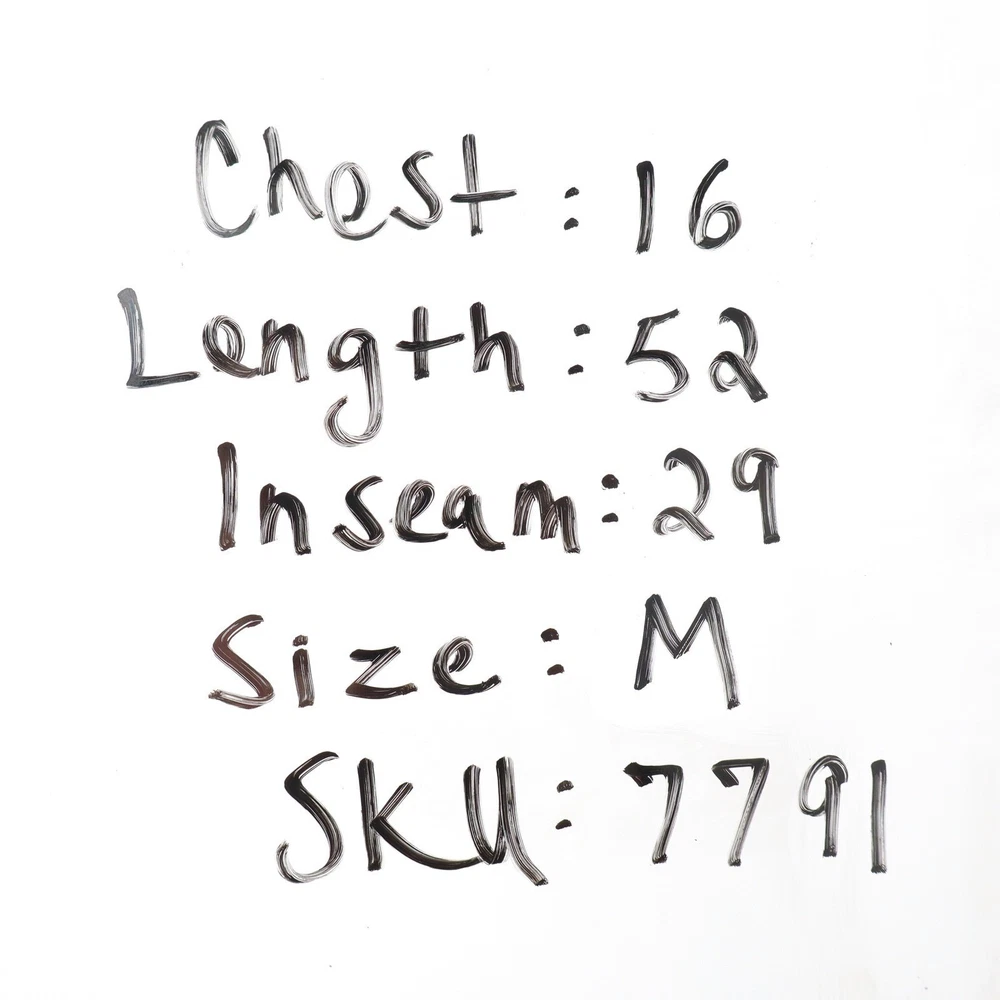 Chest : 16
Length : 52
Inseam : 29
Size : M
SKU : 7791